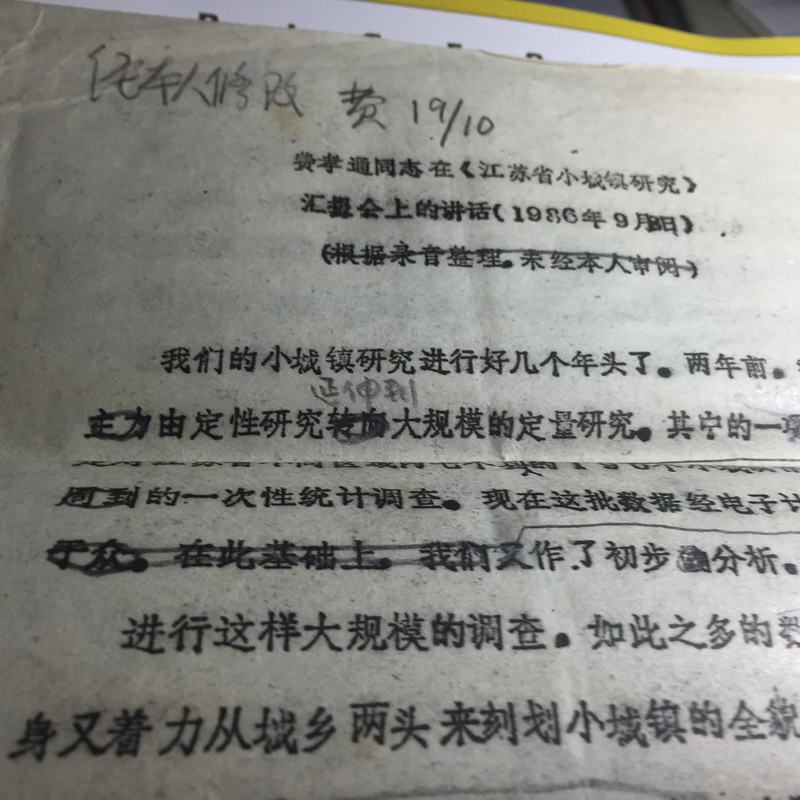 经本人修改 费 19/10
费孝通同志在《江苏省小城镇研究》
汇报会上的讲话(1986年9月8日)
(根据录音整理。未经本人审阅)
我们的小城镇研究进行好几个年头了。两年前。
延伸到
主力由定性研究转向大规模的定量研究。其中的一项
周到的一次性统计调查。现在这批数据经电子计
于众。在此基础上。我们又作了初步的分析。
进行这样大规模的调查。如此之多的数
身又着力从城乡两头来刻划小城镇的全貌